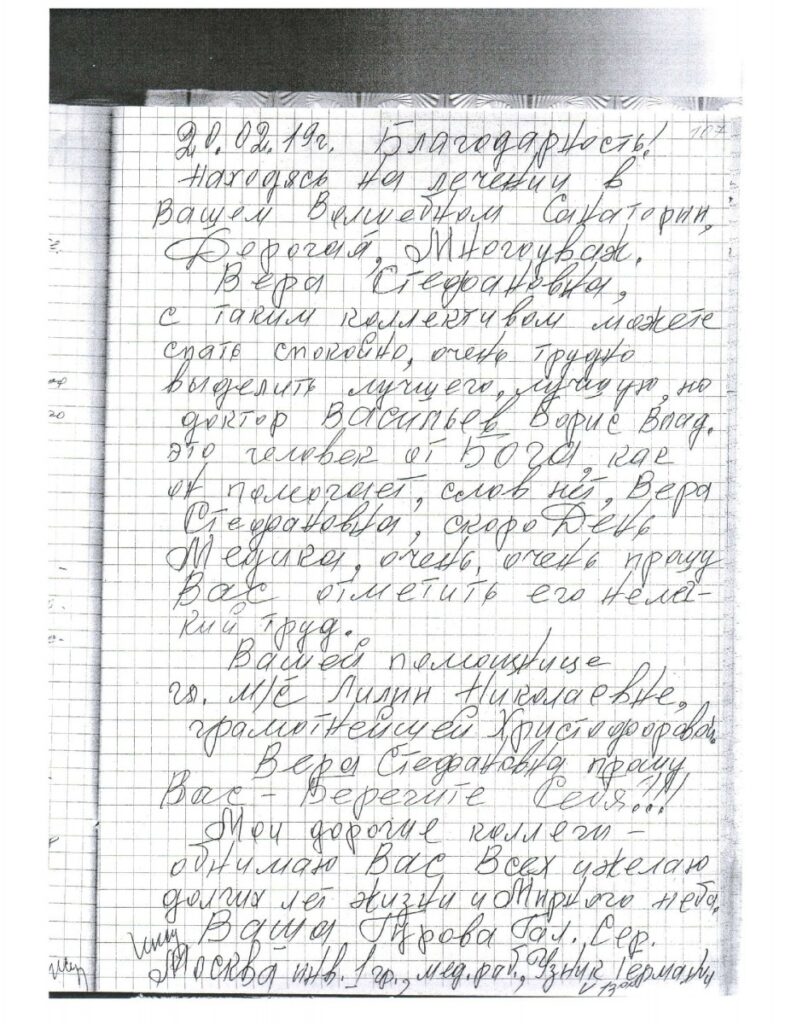 107
20.02.19г. Благодарность!
Находясь на лечении в
Вашем Волшебном Санатории,
Дорогая, Многоуваж.
Вера Стефановна,
с таким коллективом можете
спать спокойно, очень трудно
выделить лучшего, лучшую, но
доктор Васильев Борис Влад.
это человек от БОГА, как
он помогает, слов нет, Вера
Стефановна, скоро День
Медика, очень, очень прошу
Вас отметить его нелё-
кий труд.
Вашей помощнице
гл. м/с Лилии Николаевне,
грамотнейшей Христофоровой.
Вера Стефановна прошу
Вас - Берегите Себя!!!
Мои дорогие коллеги -
обнимаю Вас Всех и желаю
долгих лет жизни и Мирного неба.
Ваша Гурова Гал. Сер.
Москва инв. 1 гр., мед.раб., Узник Германии